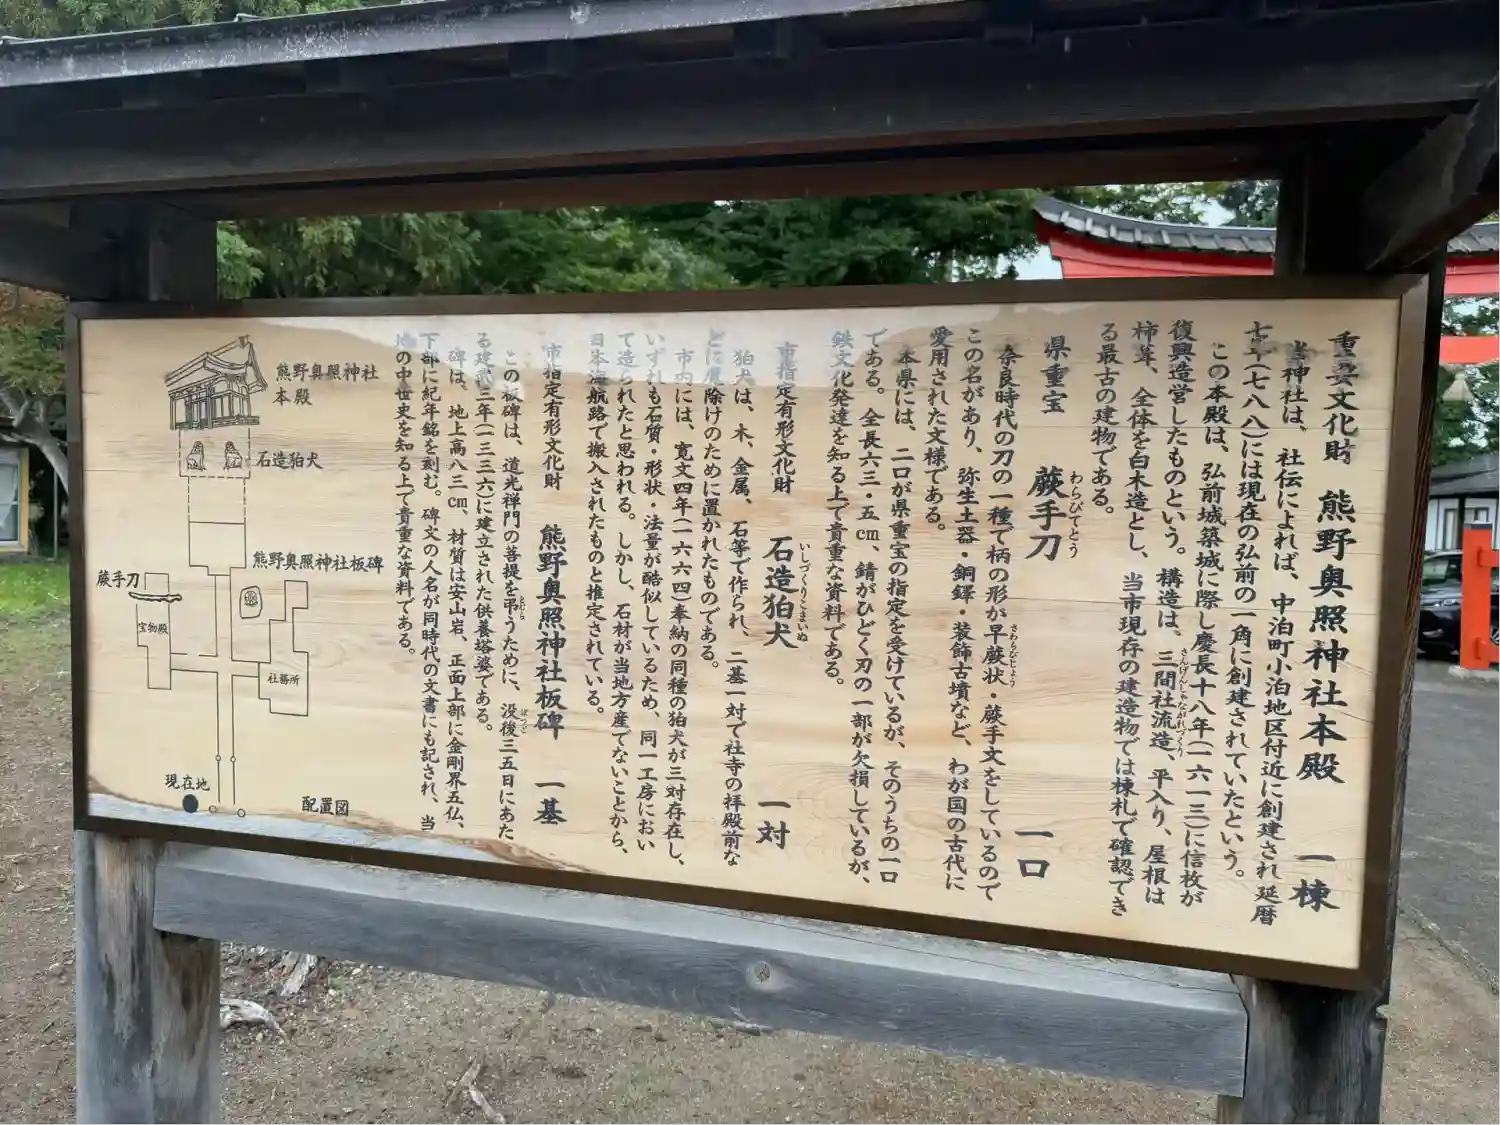 重要文化財　熊野奥照神社本殿　一棟
当神社は、社伝によれば、中泊町小泊地区付近に創建され延暦
七年(七八八)には現在の弘前の一角に創建されていたという。
この本殿は、弘前城築城に際し慶長十八年(一六一三)に信枚が
復興造営したものという。構造は、三間社流造、平入り、屋根は
さんげんしゃながれづくり
柿葺、全体を白木造とし、当市現存の建造物では棟札で確認でき
る最古の建物である。
県重宝　蕨手刀　一口
わらびてとう
奈良時代の刀の一種で柄の形が早蕨状・蕨手文をしているので
さわらびじょう
この名があり、弥生土器・銅鐸・装飾古墳など、わが国の古代に
愛用された文様である。
本県には、二口が県重宝の指定を受けているが、そのうちの一口
である。全長六三・五㎝、錆がひどく刃の一部が欠損しているが、
鉄文化発達を知る上で貴重な資料である。
市指定有形文化財　石造狛犬　一対
いしづくりこまいぬ
狛犬は、木、金属、石等で作られ、二基一対で社寺の拝殿前な
どに魔除けのために置かれたものである。
市内には、寛文四年(一六六四)奉納の同種の狛犬が三対存在し、
いずれも石質・形状・法量が酷似しているため、同一工房におい
て造られたと思われる。しかし、石材が当地方産でないことから、
日本海航路で搬入されたものと推定されている。
市指定有形文化財　熊野奥照神社板碑　一基
この板碑は、道光禅門の菩提を弔うために、没後三五日にあた
とむら
ぼつご
る建武三年(一三三六)に建立された供養塔婆である。
碑は、地上高八三㎝、材質は安山岩、正面上部に金剛界五仏、
下部に紀年銘を刻む。碑文の人名が同時代の文書にも記され、当
地の中世史を知る上で貴重な資料である。
熊野奥照神社
本殿
石造狛犬
熊野奥照神社板碑
蕨手刀
宝物殿
社務所
現在地
配置図